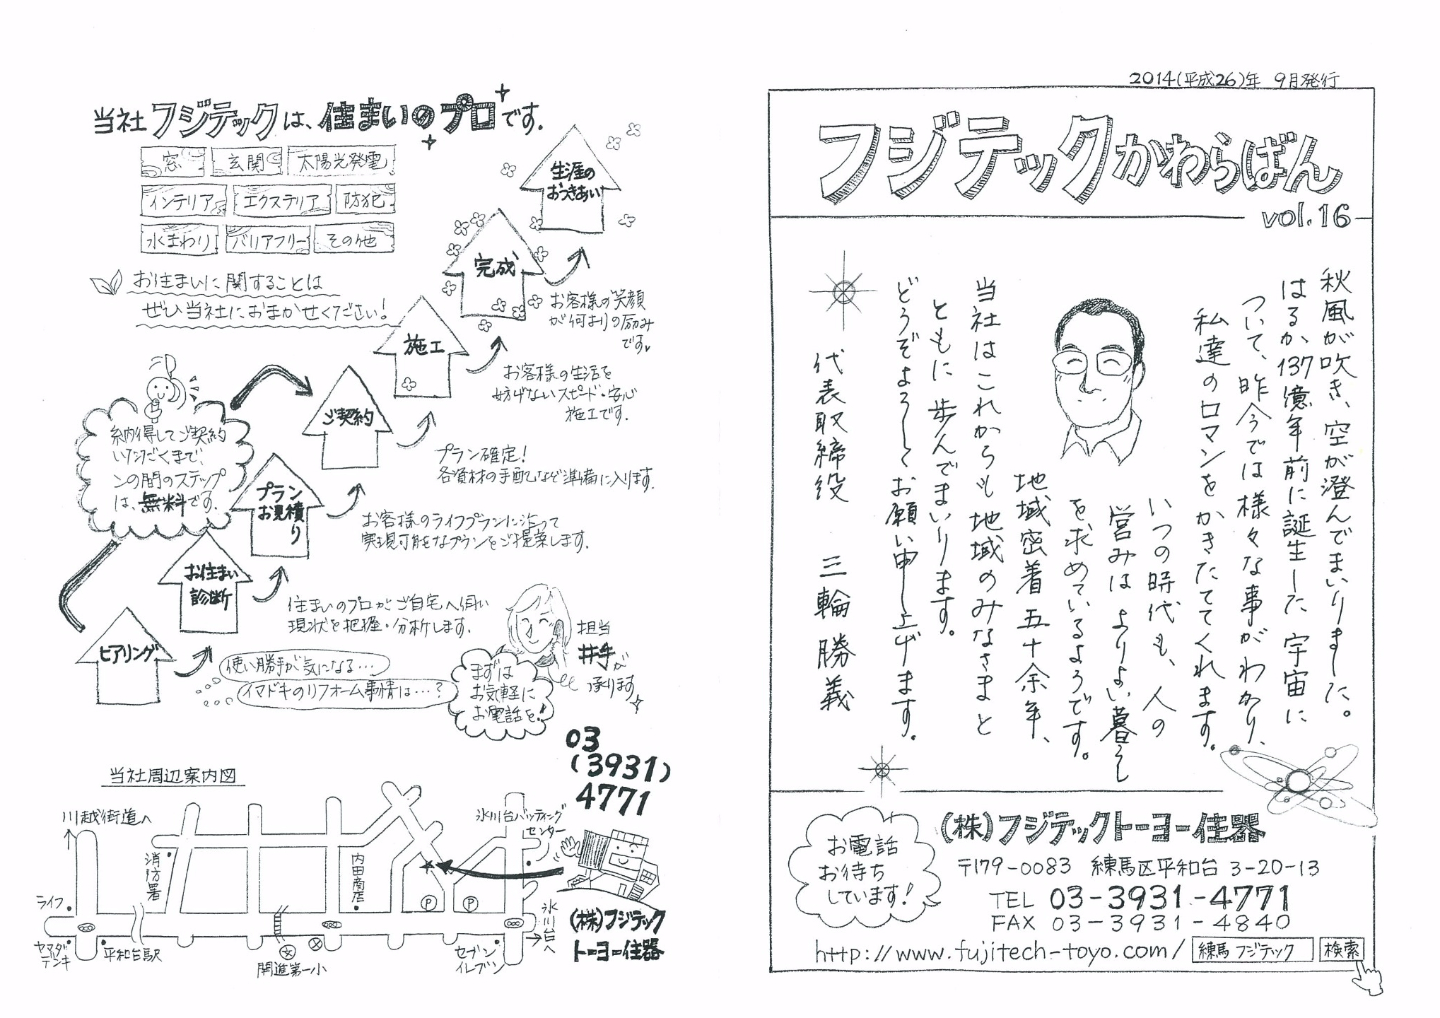 当社フジテックは、住まいのプロです。
窓 玄関 太陽光発電
インテリア エクステリア 防犯
水まわり バリアフリー その他
お住まいに関することは
ぜひ当社におまかせください!
生涯の
おつきあい
完成
お客様の笑顔
が何よりの励み
です
施工
お客様の生活を
妨げないスピード・安心
施工です。
ご契約
プラン確定!
各資材の手配など準備に入ります。
納得してご契約
いただくまで、
この間のステップ
は、無料です。
プラン
お見積り
お客様のライフプランに沿って
実現可能なプランをご提案します。
お住まい
診断
住まいのプロがご自宅へ伺い
現状を把握・分析します。
ヒアリング
使い勝手が気になる…
イマドキのリフォーム事情は…?
まずは
お気軽に
お電話を!
担当
井手が
承ります
03
(3931)
4771
当社周辺案内図
川越街道へ
消防署
内田商店
氷川台バッティング
センター
ライフ
ヤマダ
デンキ
平和台駅
開進第一小
セブン
イレブン
氷川台へ
P
P
(株)フジテック
トーヨー住器
2014(平成26)年 9月発行
フジテックかわらばん
vol.16
秋風が吹き、空が澄んでまいりました。
はるか137億年前に誕生した宇宙に
ついて、昨今では様々な事がわかり、
私達のロマンをかきたててくれます。
いつの時代も、人の
営みはよりよい暮らし
を求めているようです。
地域密着五十余年、
当社はこれからも地域のみなさまと
ともに歩んでまいります。
どうぞよろしくお願い申し上げます。
代表取締役 三輪勝義
お電話
お待ち
しています!
(株)フジテックトーヨー住器
〒179-0083 練馬区平和台 3-20-13
TEL 03-3931-4771
FAX 03-3931-4840
http://www.fujitech-toyo.com/ 練馬 フジテック 検索